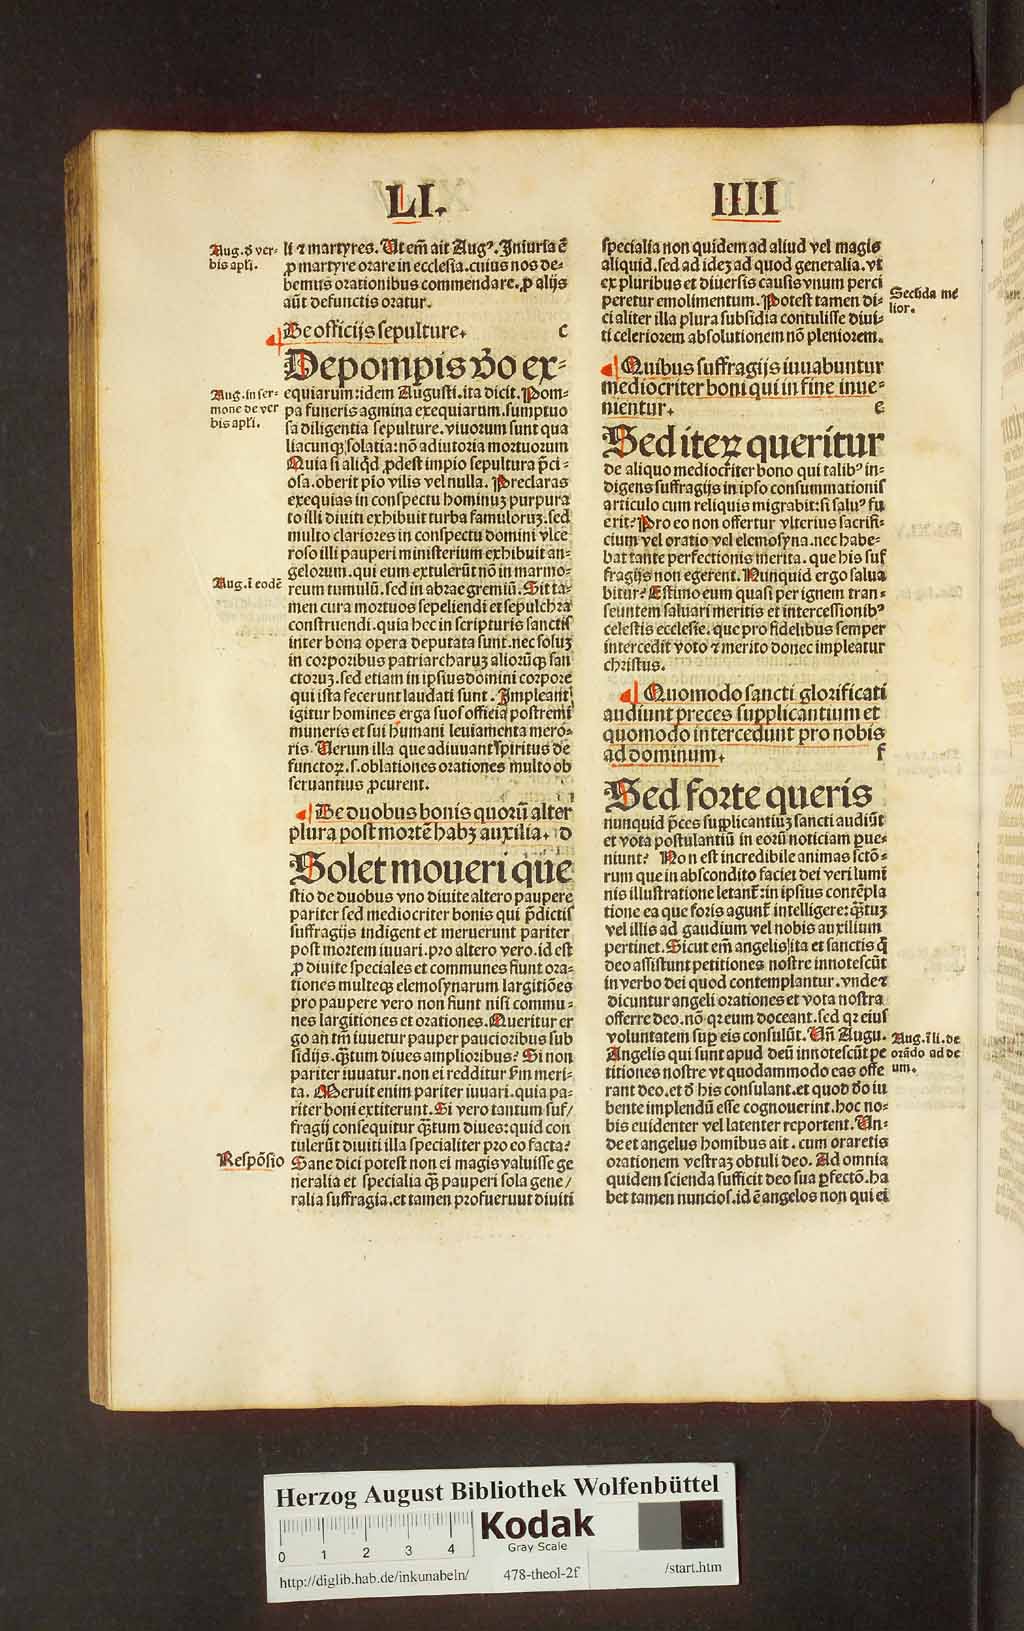 LI.
IIII
Aug. ꝺ ver-
bis apłi.
li ⁊ martyres. Ut em̄ ait Augꝰ. Iniuria ē
ꝓ martyre orare in ecclesia. cuius nos de-
bemus orationibus commendare. ꝓ alijs
aūt defunctis oratur.
De officijs sepulture. c
De pompis v̄o ex-
Aug. in ser-
mone de ver
bis apłi.
equiarum: idem Augusti. ita dicit. Pom-
pa funeris agmina exequiarum. sumptuo
sa diligentia sepulture. viuorum sunt qua
liacunqꝫ solatia: nō adiutoria mortuorum
Quia si aliqd̄ ꝓdest impio sepultura p̄ci-
osa. oberit pio vilis vel nulla. Preclaras
exequias in conspectu hominuꝫ purpura
to illi diuiti exhibuit turba famuloruꝫ. sed
multo clariores in conspectu domini vlce
roso illi pauperi ministerium exhibuit an-
gelorum. qui eum extulerūt nō in marmo-
Aug. ī eodē
reum tumulū. sed in abrae gremiū. Sit ta-
men cura mortuos sepeliendi et sepulchra
construendi. quia hec in scripturis sanctis
inter bona opera deputata sunt. nec soluꝫ
in corporibus patriarcharuꝫ aliorūqꝫ san
ctoruꝫ. sed etiam in ipsius domini corpore
qui ista fecerunt laudati sunt. Impleant
igitur homines erga suos officia postremi
muneris et sui humani leuiamenta mero-
ris. Verum illa que adiuuant spiritus de
functoꝝ. s. oblationes orationes multo ob
seruantius ꝓcurent.
De duobus bonis quorū alter
plura post mortē habꝫ auxilia. d
Solet moueri que
stio de duobus vno diuite altero paupere
pariter sed mediocriter bonis qui p̄dictis
suffragijs indigent et meruerunt pariter
post mortem iuuari. pro altero vero. id est
ꝓ diuite speciales et communes fiunt ora-
tiones multeqꝫ elemosynarum largitiōes
pro paupere vero non fiunt nisi commu-
nes largitiones et orationes. Queritur er
go an tm̄ iuuetur pauper paucioribus sub
sidijs. qꝫ̄tum diues amplioribus? Si non
pariter iuuatur. non ei redditur ẜm meri-
ta. Meruit enim pariter iuuari. quia pa-
riter boni extiterunt. Si vero tantum suf/
fragij consequitur qꝫ̄tum diues: quid con
tulerūt diuiti illa specialiter pro eo facta?
Respōsio
Sane dici potest non ei magis valuisse ge
neralia et specialia qꝫ̄ pauperi sola gene/
ralia suffragia. et tamen profuerunt diuiti
specialia non quidem ad aliud vel magis
aliquid. sed ad ideꝫ ad quod generalia. vt
ex pluribus et diuersis causis vnum perci
peretur emolimentum. Potest tamen di-
Secūda me
lior.
ci aliter illa plura subsidia contulisse diui-
ti celeriorem absolutionem nō pleniorem.
Quibus suffragijs iuuabuntur
mediocriter boni qui in fine inue-
nientur. e
Sed iteꝝ queritur
de aliquo mediocriter bono qui talibꝰ in-
digens suffragijs in ipso consummationis
articulo cum reliquis migrabit: si saluꝰ fu
erit? Pro eo non offertur vlterius sacrifi-
cium vel oratio vel elemosyna. nec habe-
bat tante perfectionis merita. que his suf
fragijs non egerent. Nunquid ergo salua
bitur? Estimo eum quasi per ignem tran-
seuntem saluari meritis et intercessionibꝰ
celestis ecclesie. que pro fidelibus semper
intercedit voto ⁊ merito donec impleatur
christus.
Quomodo sancti glorificati
audiunt preces supplicantium et
quomodo intercedunt pro nobis
ad dominum. f
Sed forte queris
nunquid p̄ces supplicantiuꝫ sancti audiūt
et vota postulantiū in eorū noticiam ꝑue-
niunt? Non est incredibile animas sctō-
rum que in abscondito faciei dei veri lumi
nis illustratione letant᷑: in ipsius contēpla
tione ea que foris agunt᷑ intelligere: qꝫ̄tuꝫ
vel illis ad gaudium vel nobis auxilium
pertinet. Sicut em̄ angelis ita et sanctis q̄
deo assistunt petitiones nostre innotescūt
in verbo dei quod contemplantur. vnde ⁊
dicuntur angeli orationes et vota nostra
offerre deo. nō qꝛ eum doceant. sed qꝛ eius
voluntatem suꝑ eis consulūt. Uñ Augu.
Aug. ī li. de
orādo ad de
um.
Angelis qui sunt apud deū innotescūt pe
titiones nostre vt quodammodo eas offe
rant deo. et ꝺ his consulant. et quod ꝺo iu
bente implendū esse cognouerint. hoc no-
bis euidenter vel latenter reportent. Un-
de et angelus homibus ait. cum oraretis
orationem vestraꝫ obtuli deo. Ad omnia
quidem scienda sufficit deo sua ꝑfectō. ha
bet tamen nuncios. id ē angelos non qui ei
Herzog August Bibliothek Wolfenbüttel
0 1 2 3 4
Kodak
Gray Scale
http://diglib.hab.de/inkunabeln/ 478-theol-2f /start.htm